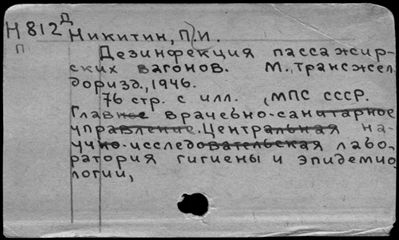 Н812 Д Никитин, П.И.
П Дезинфекция пассажир-
ских вагонов. М., Трансжел-
доризд., 1946.
76 стр. с илл. (МПС СССР.
Главное врачебно-санитарное
управление. Центральная на-
учно-исследовательская лабо-
ратория гигиены и эпидемио
логии,